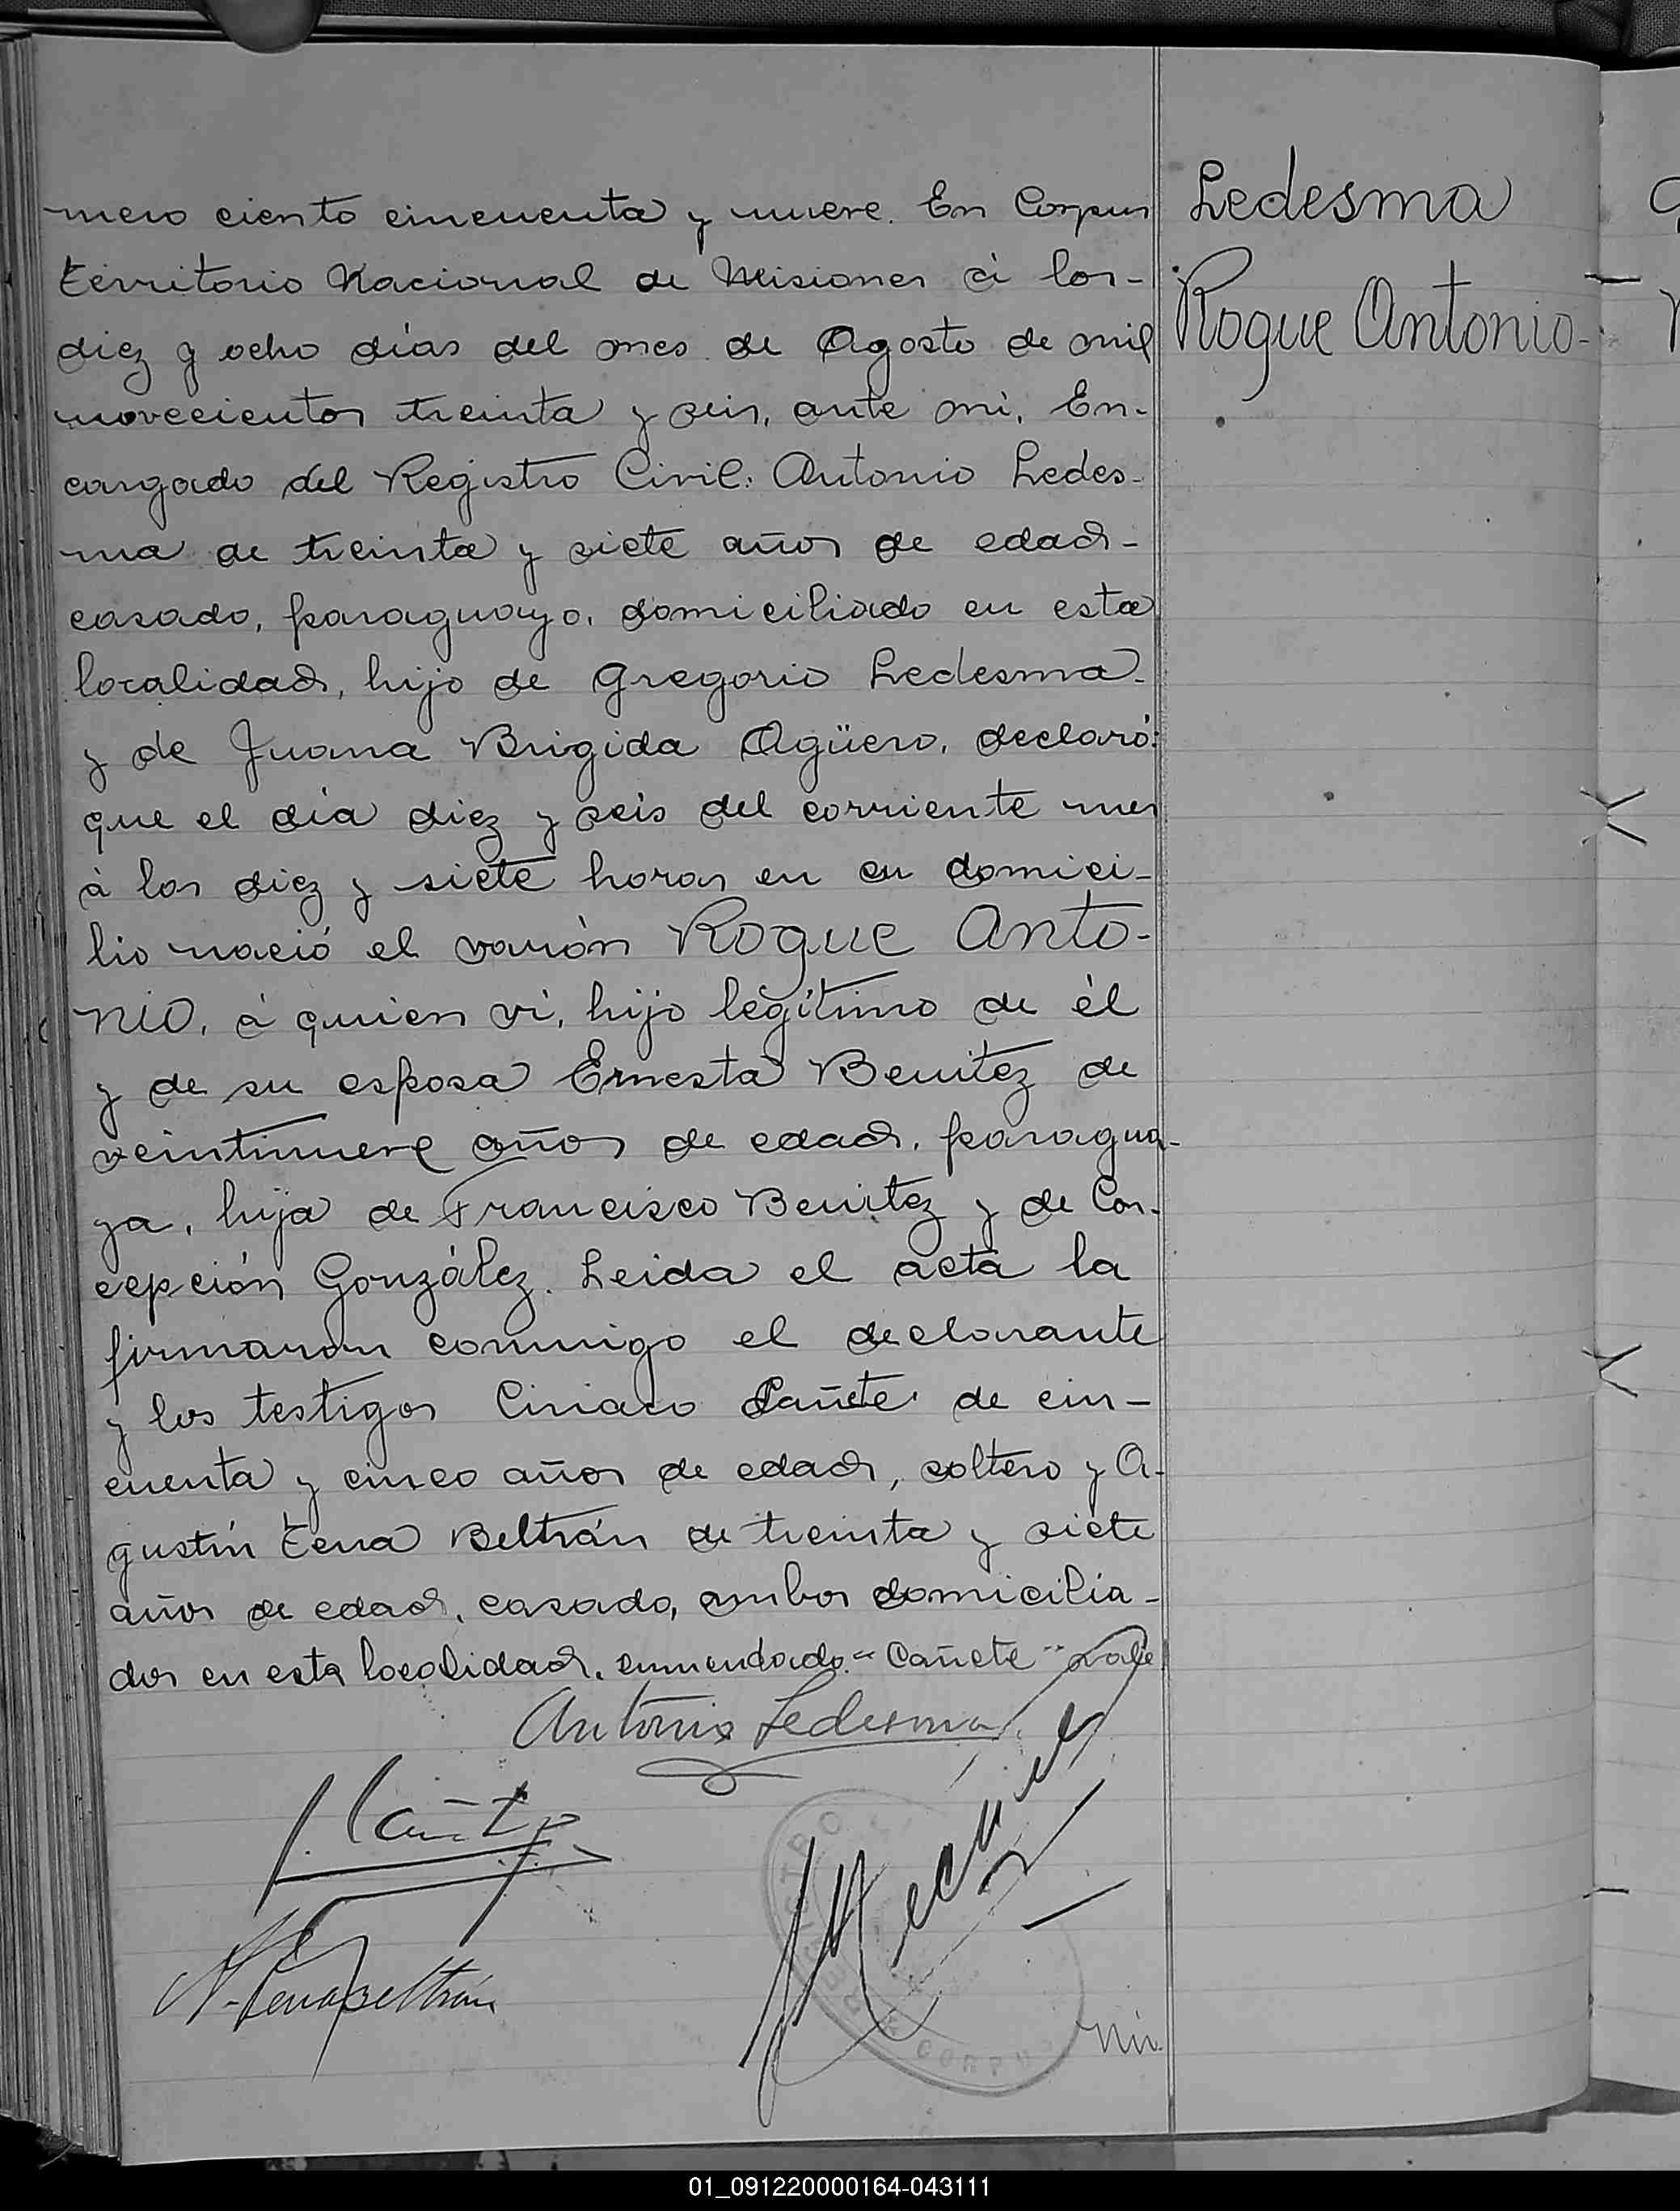 mero ciento cincuenta y nueve. En Corpus
territorio Nacional de Misiones á los-
diez y ocho días del mes de Agosto de mil
novecientos treinta y seis, ante mí, En-
cargado del Registro Civil: Antonio Ledes-
ma de treinta y siete años de edad-
casado, paraguayo, domiciliado en esta
localidad, hijo de Gregorio Ledesma-
y de Juana Brigida Agüero, declaró:
que el día diez y seis del corriente mes
á las diez y siete horas en su domici-
lio nació el varón Roque Anto-
nio, á quien ví, hijo legítimo de él
y de su esposa Ernesta Benitez de
veintinueve años de edad, paragua-
ya, hija de Francisco Benitez y de Con-
cepción González. Leida el acta la
firmaron conmigo el declarante
y los testigos Ciriaco Cañete de cin-
cuenta y cinco años de edad, soltero y A-
gustín Tena Beltrán de treinta y siete
años de edad, casado, ambos domicilia-
dos en esta localidad. enmendado "Cañete" vale
Antonio Ledesma
Cañete
Tena Beltrán
REGISTRO
CORPUS
Nú-
Ledesma
Roque Antonio-
01_091220000164-043111